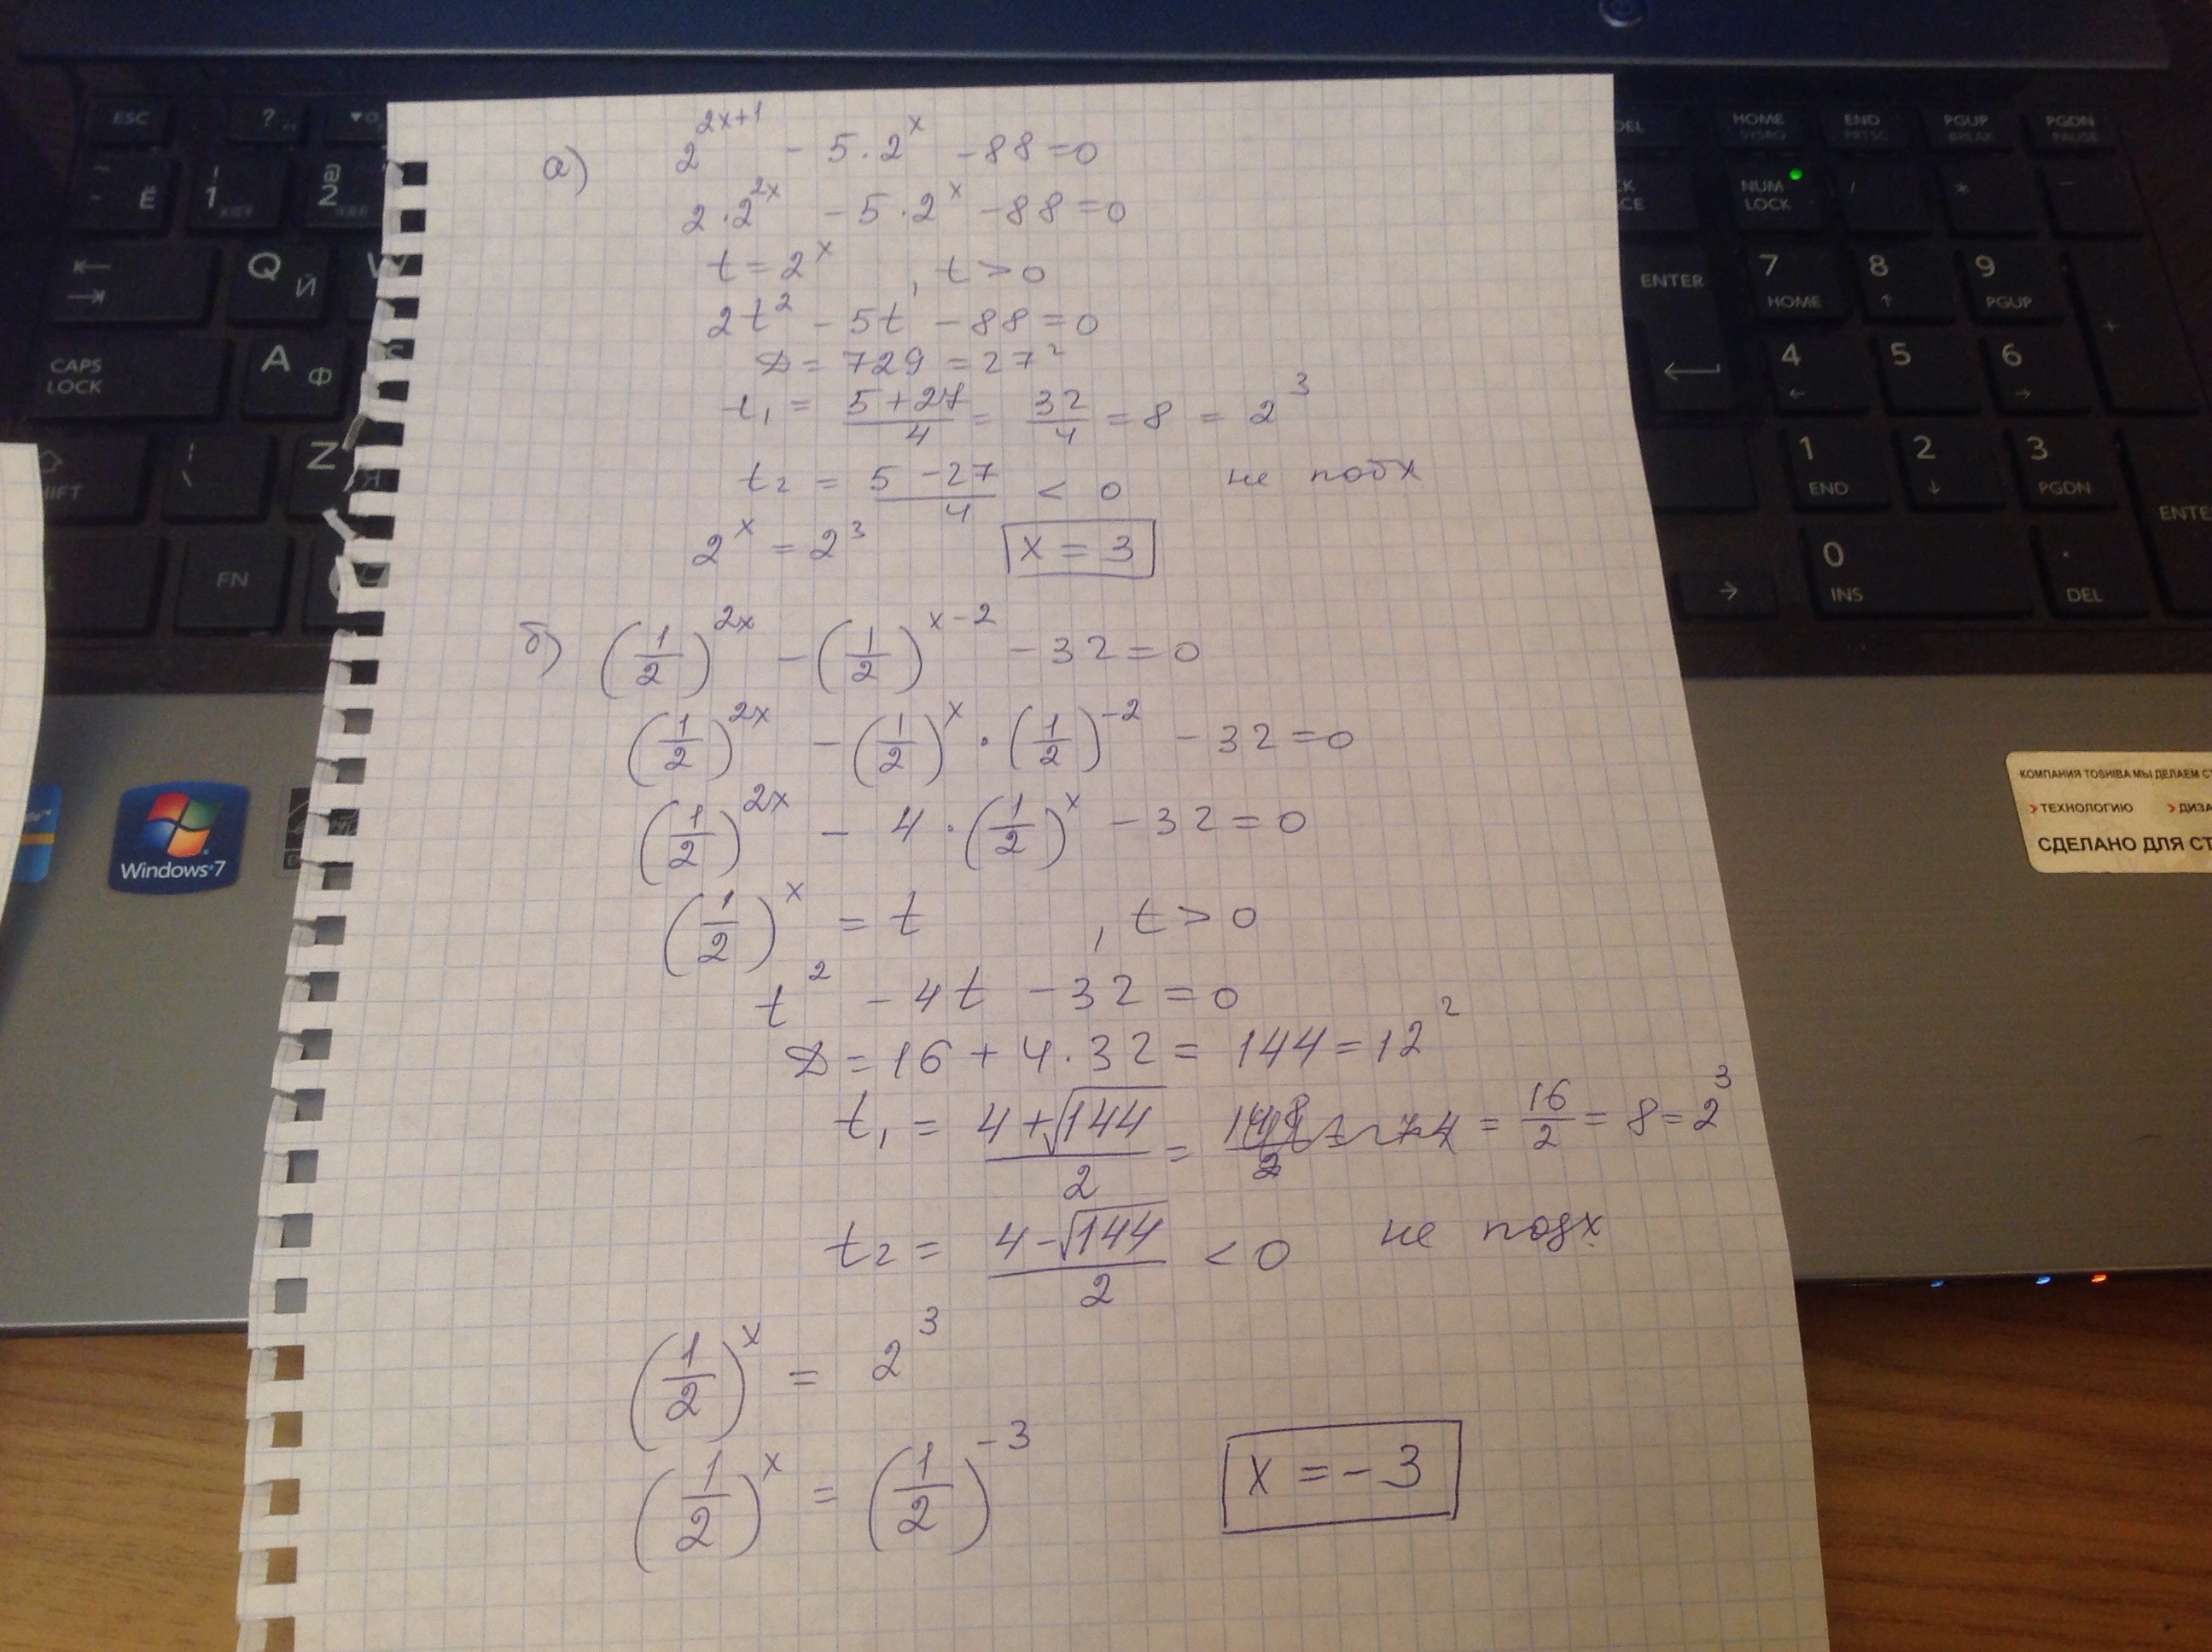 а) 2^(2x+1) - 5·2^x - 88 = 0
2·2^(2x) - 5·2^x - 88 = 0
t = 2^x , t > 0
2t² - 5t - 88 = 0
D = 729 = 27²
t₁ = (5+27)/4 = 32/4 = 8 = 2³
t₂ = (5-27)/4 < 0 не подх
2^x = 2³ x = 3
б) (1/2)^(2x) - (1/2)^(x-2) - 32 = 0
(1/2)^(2x) - (1/2)^x · (1/2)^(-2) - 32 = 0
(1/2)^(2x) - 4·(1/2)^x - 32 = 0
(1/2)^x = t , t > 0
t² - 4t - 32 = 0
D = 16 + 4·32 = 144 = 12²
t₁ = (4+√144)/2 = = 16/2 = 8 = 2³
t₂ = (4-√144)/2 < 0 не подх.
(1/2)^x = 2³
(1/2)^x = (1/2)^(-3) x = -3
ESC
?
Ё
1
2 @
Q Й
W
CAPS LOCK
A Ф
Z Я
FN
DEL
HOME SYSRQ
END PRTSC
PGUP BREAK
PGDN PAUSE
NUM LOCK
/
*
-
ENTER
7 HOME
8 ↑
9 PGUP
+
4 ←
5
6 →
1 END
2 ↓
3 PGDN
0 INS
. DEL
Windows 7
КОМПАНИЯ TOSHIBA МЫ ДЕЛАЕМ
ТЕХНОЛОГИЮ
СДЕЛАНО ДЛЯ